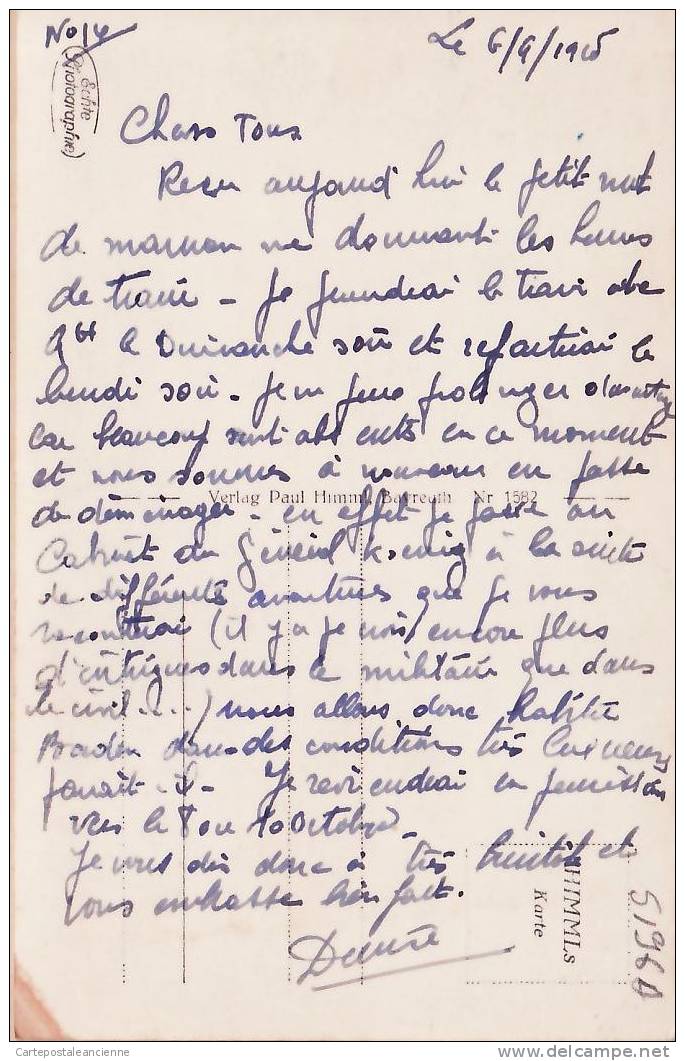 No 14
Le 6/9/1945
Echte
Photographie
Chers Tous
Reçu aujourd'hui le petit mot
de maman me donnant les heures
de train - Je prendrai le train de
le Dimanche soir et repartirai le
lundi soir. Je ne peux prolonger davantage
car beaucoup sont absents en ce moment
et nous sommes à nouveau en passe
Verlag Paul Himml, Bayreuth Nr 1582
de déménager - en effet je passe au
Cabinet du Général Koenig à la suite
de différentes aventures que je vous
raconterai (il y a je crois encore plus
d'intrigues dans le militaire que dans
le civil....) nous allons donc habiter
Baden dans des conditions très luxueuses
paraît-il - Je reviendrai en permission
vers le 8 ou 10 Octobre
Je vous dis donc à très bientôt et
vous embrasse bien fort.
Denise
HIMMLs
Karte
51960
Cartepostaleancienne
www.delcampe.net